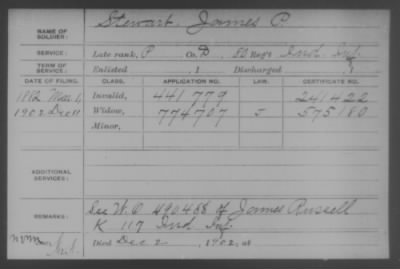 NAME OF SOLDIER: Stewart, James P.
SERVICE: Late rank, P Co. D, 80 Reg't Ind. Inf.
TERM OF SERVICE: Enlisted , 1 Discharged , 1
DATE OF FILING. CLASS. APPLICATION NO. LAW. CERTIFICATE NO.
1882 Mar. 1, Invalid, 441 779 241422
1902 Dec 11 Widow, 774707 575180
Minor,
ADDITIONAL SERVICES:
REMARKS: See W. O 490488 of James Russell
K 117 Ind. Inf.
Died Dec 2, 1902, at